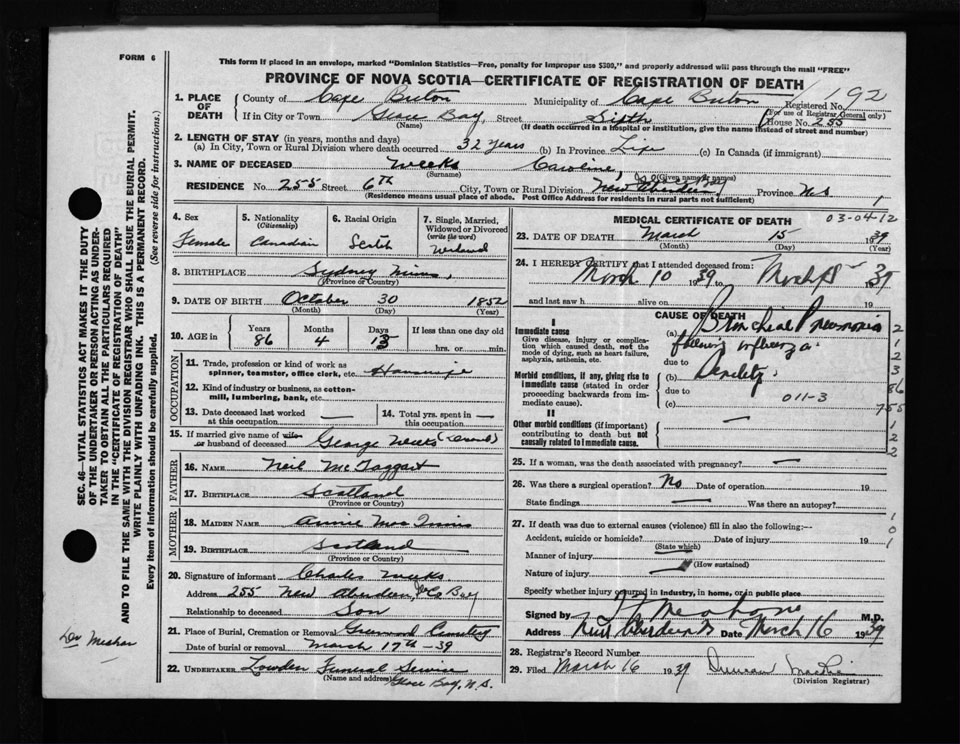 FORM 6
This form if placed in an envelope, marked "Dominion Statistics—Free, penalty for improper use $300," and properly addressed will pass through the mail "FREE"
PROVINCE OF NOVA SCOTIA—CERTIFICATE OF REGISTRATION OF DEATH
192
1. PLACE OF DEATH County of Cape Breton Municipality of Cape Breton Registered No.
(For use of Registrar General only)
If in City or Town Glace Bay Street Sixth House No. 255
(Name) (If death occurred in a hospital or institution, give the name instead of street and number)
2. LENGTH OF STAY (in years, months and days)
(a) In City, Town or Rural Division where death occurred 32 years (b) In Province Life (c) In Canada (if immigrant)
3. NAME OF DECEASED Weeks Caroline,
(Surname) (Given name or names)
RESIDENCE No. 255 Street 6th City, Town or Rural Division New Aberdeen Province N.S
(Residence means usual place of abode. Post Office Address for residents in rural parts not sufficient)
4. Sex 5. Nationality (Citizenship) 6. Racial Origin 7. Single, Married, Widowed or Divorced (write the word)
Female Canadian Scotch Widowed
8. BIRTHPLACE Sydney Mines,
(Province or Country)
9. DATE OF BIRTH October 30 1852
(Month) (Day) (Year)
10. AGE in Years Months Days If less than one day old
86 4 15 hrs. or min.
OCCUPATION
11. Trade, profession or kind of work as spinner, teamster, office clerk, etc. Housewife
12. Kind of industry or business, as cotton-mill, lumbering, bank, etc.
13. Date deceased last worked at this occupation — 14. Total yrs. spent in this occupation —
15. If married give name of wife or husband of deceased George Weeks
FATHER
16. NAME Neil McTaggart
17. BIRTHPLACE Scotland
(Province or Country)
MOTHER
18. MAIDEN NAME Annie Mac
19. BIRTHPLACE Scotland
(Province or Country)
20. Signature of informant Charles Weeks
Address 255 New Aberdeen, Gce Bay
Relationship to deceased Son
21. Place of Burial, Cremation or Removal Greenwood Cemetery
Date of burial or removal March 17th - 39
22. UNDERTAKER Lowden Funeral Service
(Name and address) Glace Bay, N.S.
MEDICAL CERTIFICATE OF DEATH 03-04-12
23. DATE OF DEATH March 15 1939
(Month) (Day) (Year)
24. I HEREBY CERTIFY that I attended deceased from:
March 10 1939 to March 15 1939
and last saw h alive on 19
CAUSE OF DEATH
I
Immediate cause
Give disease, injury or complication which caused death, not the mode of dying, such as heart failure, asphyxia, asthenia, etc.
(a) Bronchial Pneumonia
following influenza
due to
Morbid conditions, if any, giving rise to immediate cause (stated in order proceeding backwards from immediate cause).
(b) Senility
due to
(c) 011-3
II
Other morbid conditions (if important) contributing to death but not causally related to immediate cause. —
2
1
2
3
86
755
1
2
2
25. If a woman, was the death associated with pregnancy? —
26. Was there a surgical operation? No Date of operation 19
State findings — Was there an autopsy?
27. If death was due to external causes (violence) fill in also the following:—
Accident, suicide or homicide? Date of injury 19
(State which)
Manner of injury
(How sustained)
Nature of injury —
Specify whether injury occurred in industry, in home, or in public place
1
0
1
Signed by M.D.
Address New Aberdeen N.S Date March 16 1939
28. Registrar's Record Number
29. Filed March 16 1939 Duncan
(Division Registrar)
SEC. 46—VITAL STATISTICS ACT MAKES IT THE DUTY OF THE UNDERTAKER OR PERSON ACTING AS UNDERTAKER TO OBTAIN ALL THE PARTICULARS REQUIRED IN THE "CERTIFICATE OF REGISTRATION OF DEATH"
AND TO FILE THE SAME WITH THE DIVISION REGISTRAR WHO SHALL ISSUE THE BURIAL PERMIT.
WRITE PLAINLY WITH UNFADING INK. THIS IS A PERMANENT RECORD.
Every item of information should be carefully supplied. (See reverse side for instructions.)
Dr